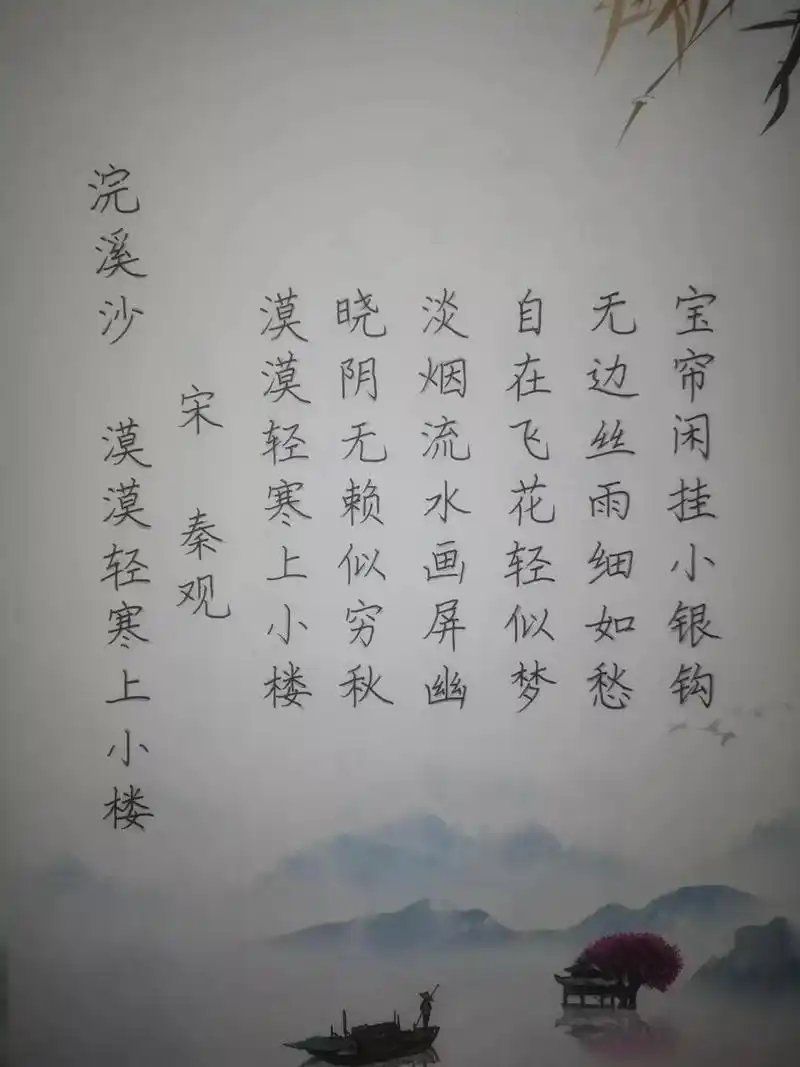 浣溪沙 漠漠轻寒上小楼
宋 秦观
漠漠轻寒上小楼
晓阴无赖似穷秋
淡烟流水画屏幽
自在飞花轻似梦
无边丝雨细如愁
宝帘闲挂小银钩